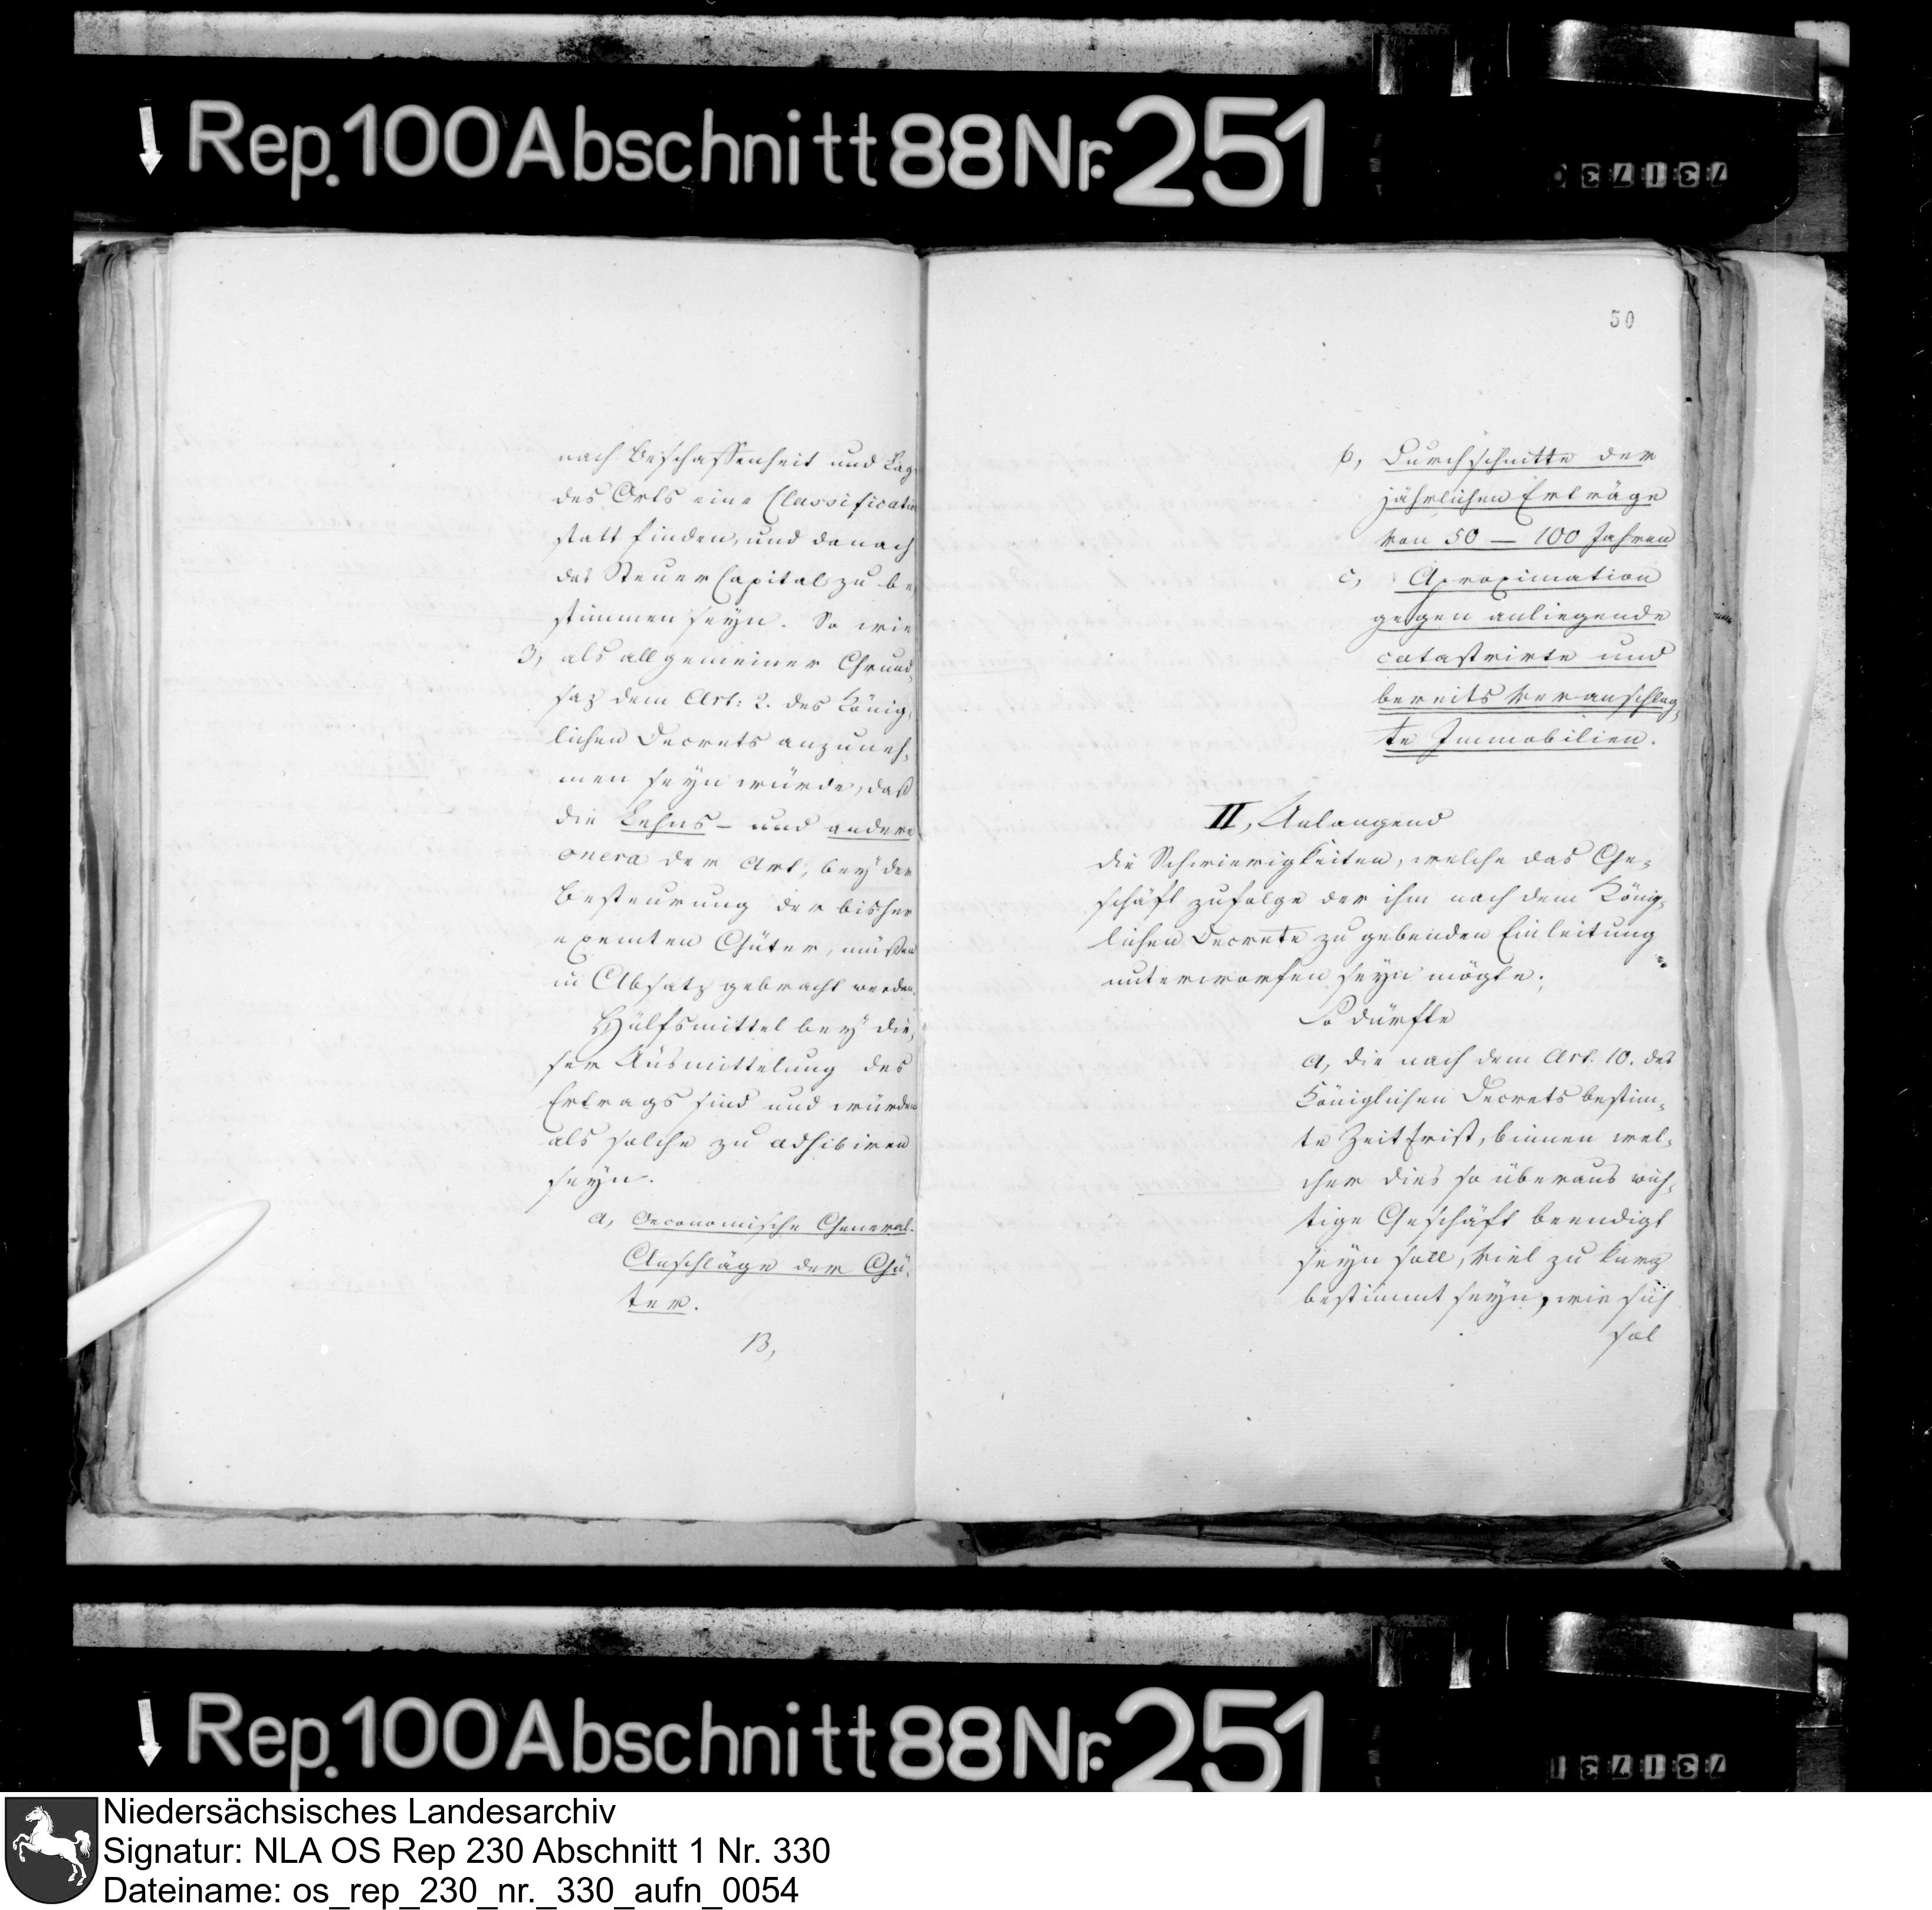 Rep. 100 Abschnitt 88 Nr. 251
nach Beschaffenheit und Lag
des Orts eine Classificatio
statt finden, und danach
das Steuer Capital zu be
stimmen seyn. So wie
3, als allgemeiner Grund,
saz dem Art: 2. des König,
lichen Decrets anzuneh,
men seyn würde, daß
die Lehns- und andere
onera der Art, bey der
Besteurung der bisher
exemten Güter, müßen
in Absatz gebracht werden.
Hülfsmittel bey die,
ser Ausmittelung des
Ertrags sind und würden
als solche zu adhibiren
seyn.
a, Oeconomische General-
Anschläge der Gü,
ter.
B,
50
b, Durchschnitte der
jährlichen Erträge
von 50 — 100 Jahren
c, Aproximation
gegen anliegende
catastrirte und
bereits veranschlag,
te Immobilien.
II, Anlangend
die Schwierigkeiten, welche das Ge-
schäft zufolge der ihm nach dem König,
lichen Decrete zu gebenden Einleitung
unterworfen seyn mögte;
So dürfte
a, die nach dem Art. 10. des
Königlichen Decrets bestim,
te Zeitfrist, binnen wel-
cher dies so überaus wich,
tige Geschäft beendigt
seyn soll, viel zu kurz
bestimmt seyn, wie sich
sol
Rep. 100 Abschnitt 88 Nr. 251
Niedersächsisches Landesarchiv
Signatur: NLA OS Rep 230 Abschnitt 1 Nr. 330
Dateiname: os_rep_230_nr._330_aufn_0054